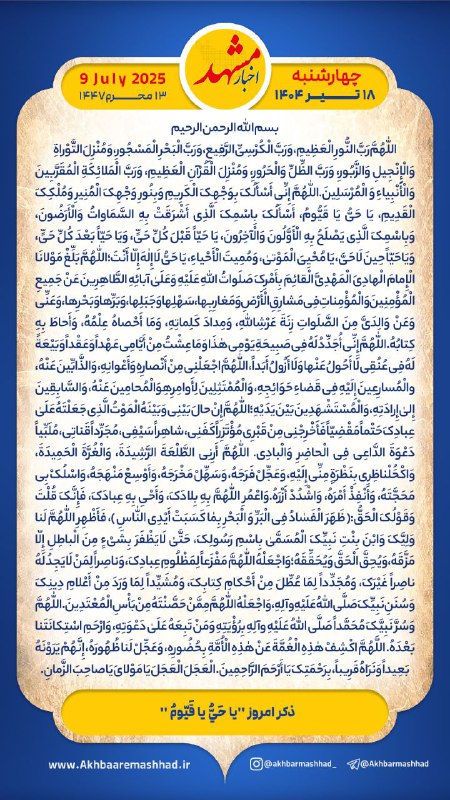 اخبار مشهد
چهارشنبه
۱۸ تـــیـــر ۱۴۰۴
9 July 2025
۱۳ محـــرم ۱۴۴۷
بسم الله الرحمن الرحیم
اللّٰهُمَّ رَبَّ النُّورِ الْعَظِیمِ، وَرَبَّ الْکُرْسِیِّ الرَّفِیعِ، وَرَبَّ الْبَحْرِ الْمَسْجُورِ، وَمُنْزِلَ التَّوْراةِ
وَالْإِنْجِیلِ وَالزَّبُورِ وَرَبَّ الظِّلِّ وَالْحَرُورِ، وَمُنْزِلَ الْقُرْآنِ الْعَظِیمِ، وَرَبَّ الْمَلائِکَةِ الْمُقَرَّبِینَ
وَالْأَنْبِیاءِ وَالْمُرْسَلِینَ. اللّٰهُمَّ إِنِّی أَسْأَلُکَ بِوَجْهِکَ الْکَرِیمِ وَبِنُورِ وَجْهِکَ الْمُنِیرِ وَمُلْکِکَ
الْقَدِیمِ، یَا حَیُّ یَا قَیُّومُ، أَسْأَلُکَ بِاسْمِکَ الَّذِی أَشْرَقَتْ بِهِ السَّماوَاتُ وَالْأَرَضُونَ،
وَبِاسْمِکَ الَّذِی یَصْلَحُ بِهِ الْأَوَّلُونَ وَالْآخِرُونَ، یَا حَیّاً قَبْلَ کُلِّ حَیٍّ، وَیَا حَیّاً بَعْدَ کُلِّ حَیٍّ،
وَیَا حَیّاً حِینَ لَاحَیَّ، یَا مُحْیِیَ الْمَوْتىٰ، وَمُمِیتَ الْأَحْیاءِ، یَا حَیُّ لَاإِلٰهَ إِلّا أَنْتَ؛ اللّٰهُمَّ بَلِّغْ مَوْلانَا
الْإِمامَ الْهادِیَ الْمَهْدِیَّ الْقائِمَ بِأَمْرِکَ صَلَواتُ اللّٰهِ عَلَیْهِ وَعَلَىٰ آبائِهِ الطَّاهِرِینَ عَنْ جَمِیعِ
الْمُؤْمِنِینَ وَالْمُؤْمِناتِ فِی مَشارِقِ الْأَرْضِ وَمَغارِبِها، سَهْلِها وَجَبَلِها، وَبَرِّها وَبَحْرِها، وَعَنِّی
وَعَنْ وَالِدَیَّ مِنَ الصَّلَواتِ زِنَةَ عَرْشِ اللّٰهِ، وَمِدادَ کَلِماتِهِ، وَمَا أَحْصاهُ عِلْمُهُ، وَأَحاطَ بِهِ
کِتابُهُ. اللّٰهُمَّ إِنِّی أُجَدِّدُ لَهُ فِی صَبِیحَةِ یَوْمِی هٰذَا وَمَا عِشْتُ مِنْ أَیَّامِی عَهْداً وَعَقْداً وَبَیْعَةً
لَهُ فِی عُنُقِی لَاأَحُولُ عَنْها وَلَاأَزُولُ أَبَداً. اللّٰهُمَّ اجْعَلْنِی مِنْ أَنْصارِهِ وَأَعْوانِهِ، وَالذَّابِّینَ عَنْهُ،
وَالْمُسارِعِینَ إِلَیْهِ فِی قَضاءِ حَوَائِجِهِ، وَالْمُمْتَثِلِینَ لِأَوامِرِهِ وَالْمُحامِینَ عَنْهُ، وَالسَّابِقِینَ
إِلىٰ إِرادَتِهِ، وَالْمُسْتَشْهَدِینَ بَیْنَ یَدَیْهِ؛ اللّٰهُمَّ إِنْ حالَ بَیْنِی وَبَیْنَهُ الْمَوْتُ الَّذِی جَعَلْتَهُ عَلَىٰ
عِبادِکَ حَتْماً مَقْضِیّاً فَأَخْرِجْنِی مِنْ قَبْرِی مُؤْتَزِراً کَفَنِی، شاهِراً سَیْفِی، مُجَرِّداً قَناتِی، مُلَبِّیاً
دَعْوَةَ الدَّاعِی فِی الْحاضِرِ وَالْبادِی. اللّٰهُمَّ أَرِنِی الطَّلْعَةَ الرَّشِیدَةَ، وَالْغُرَّةَ الْحَمِیدَةَ،
وَاکْحُلْ ناظِرِی بِنَظْرَةٍ مِنِّی إِلَیْهِ، وَعَجِّلْ فَرَجَهُ، وَسَهِّلْ مَخْرَجَهُ، وَأَوْسِعْ مَنْهَجَهُ، وَاسْلُکْ بِی
مَحَجَّتَهُ، وَأَنْفِذْ أَمْرَهُ، وَاشْدُدْ أَزْرَهُ. وَاعْمُرِ اللّٰهُمَّ بِهِ بِلادَکَ، وَأَحْیِ بِهِ عِبادَکَ، فَإِنَّکَ قُلْتَ
وَقَوْلُکَ الْحَقُّ: ﴿ظَهَرَ الْفَسٰادُ فِی الْبَرِّ وَ الْبَحْرِ بِمٰا کَسَبَتْ أَیْدِی النّٰاسِ﴾، فَأَظْهِرِ اللّٰهُمَّ لَنا
وَلِیَّکَ وَابْنَ بِنْتِ نَبِیِّکَ الْمُسَمَّىٰ بِاسْمِ رَسُولِکَ، حَتَّىٰ لَا یَظْفَرَ بِشَیْءٍ مِنَ الْباطِلِ إِلّا
مَزَّقَهُ، وَیُحِقَّ الْحَقَّ وَیُحَقِّقَهُ؛ وَاجْعَلْهُ اللّٰهُمَّ مَفْزَعاً لِمَظْلُومِ عِبادِکَ، وَناصِراً لِمَنْ لَایَجِدُ لَهُ
ناصِراً غَیْرَکَ، وَمُجَدِّداً لِمَا عُطِّلَ مِنْ أَحْکامِ کِتابِکَ، وَمُشَیِّداً لِمَا وَرَدَ مِنْ أَعْلامِ دِینِکَ
وَسُنَنِ نَبِیِّکَ صَلَّى اللّٰهُ عَلَیْهِ وَآلِهِ، وَاجْعَلْهُ اللّٰهُمَّ مِمَّنْ حَصَّنْتَهُ مِنْ بَأْسِ الْمُعْتَدِینَ. اللّٰهُمَّ
وَسُرَّ نَبِیَّکَ مُحَمَّداً صَلَّى اللّٰهُ عَلَیْهِ وَآلِهِ بِرُؤْیَتِهِ وَمَنْ تَبِعَهُ عَلَىٰ دَعْوَتِهِ، وَارْحَمِ اسْتِکانَتَنا
بَعْدَهُ. اللّٰهُمَّ اکْشِفْ هٰذِهِ الْغُمَّةَ عَنْ هٰذِهِ الْأُمَّةِ بِحُضُورِهِ، وَعَجِّلْ لَنا ظُهُورَهُ، إِنَّهُمْ یَرَوْنَهُ
بَعِیداً وَنَرَاهُ قَرِیباً، بِرَحْمَتِکَ یَا أَرْحَمَ الرَّاحِمِینَ. الْعَجَلَ الْعَجَلَ یَا مَوْلایَ یَا صاحِبَ الزَّمانِ.
ذکر امروز "یا حَیُّ یا قَیّومُ"
www.Akhbaaremashhad.ir
@akhbarmashhad_
@Akhbarmashhad